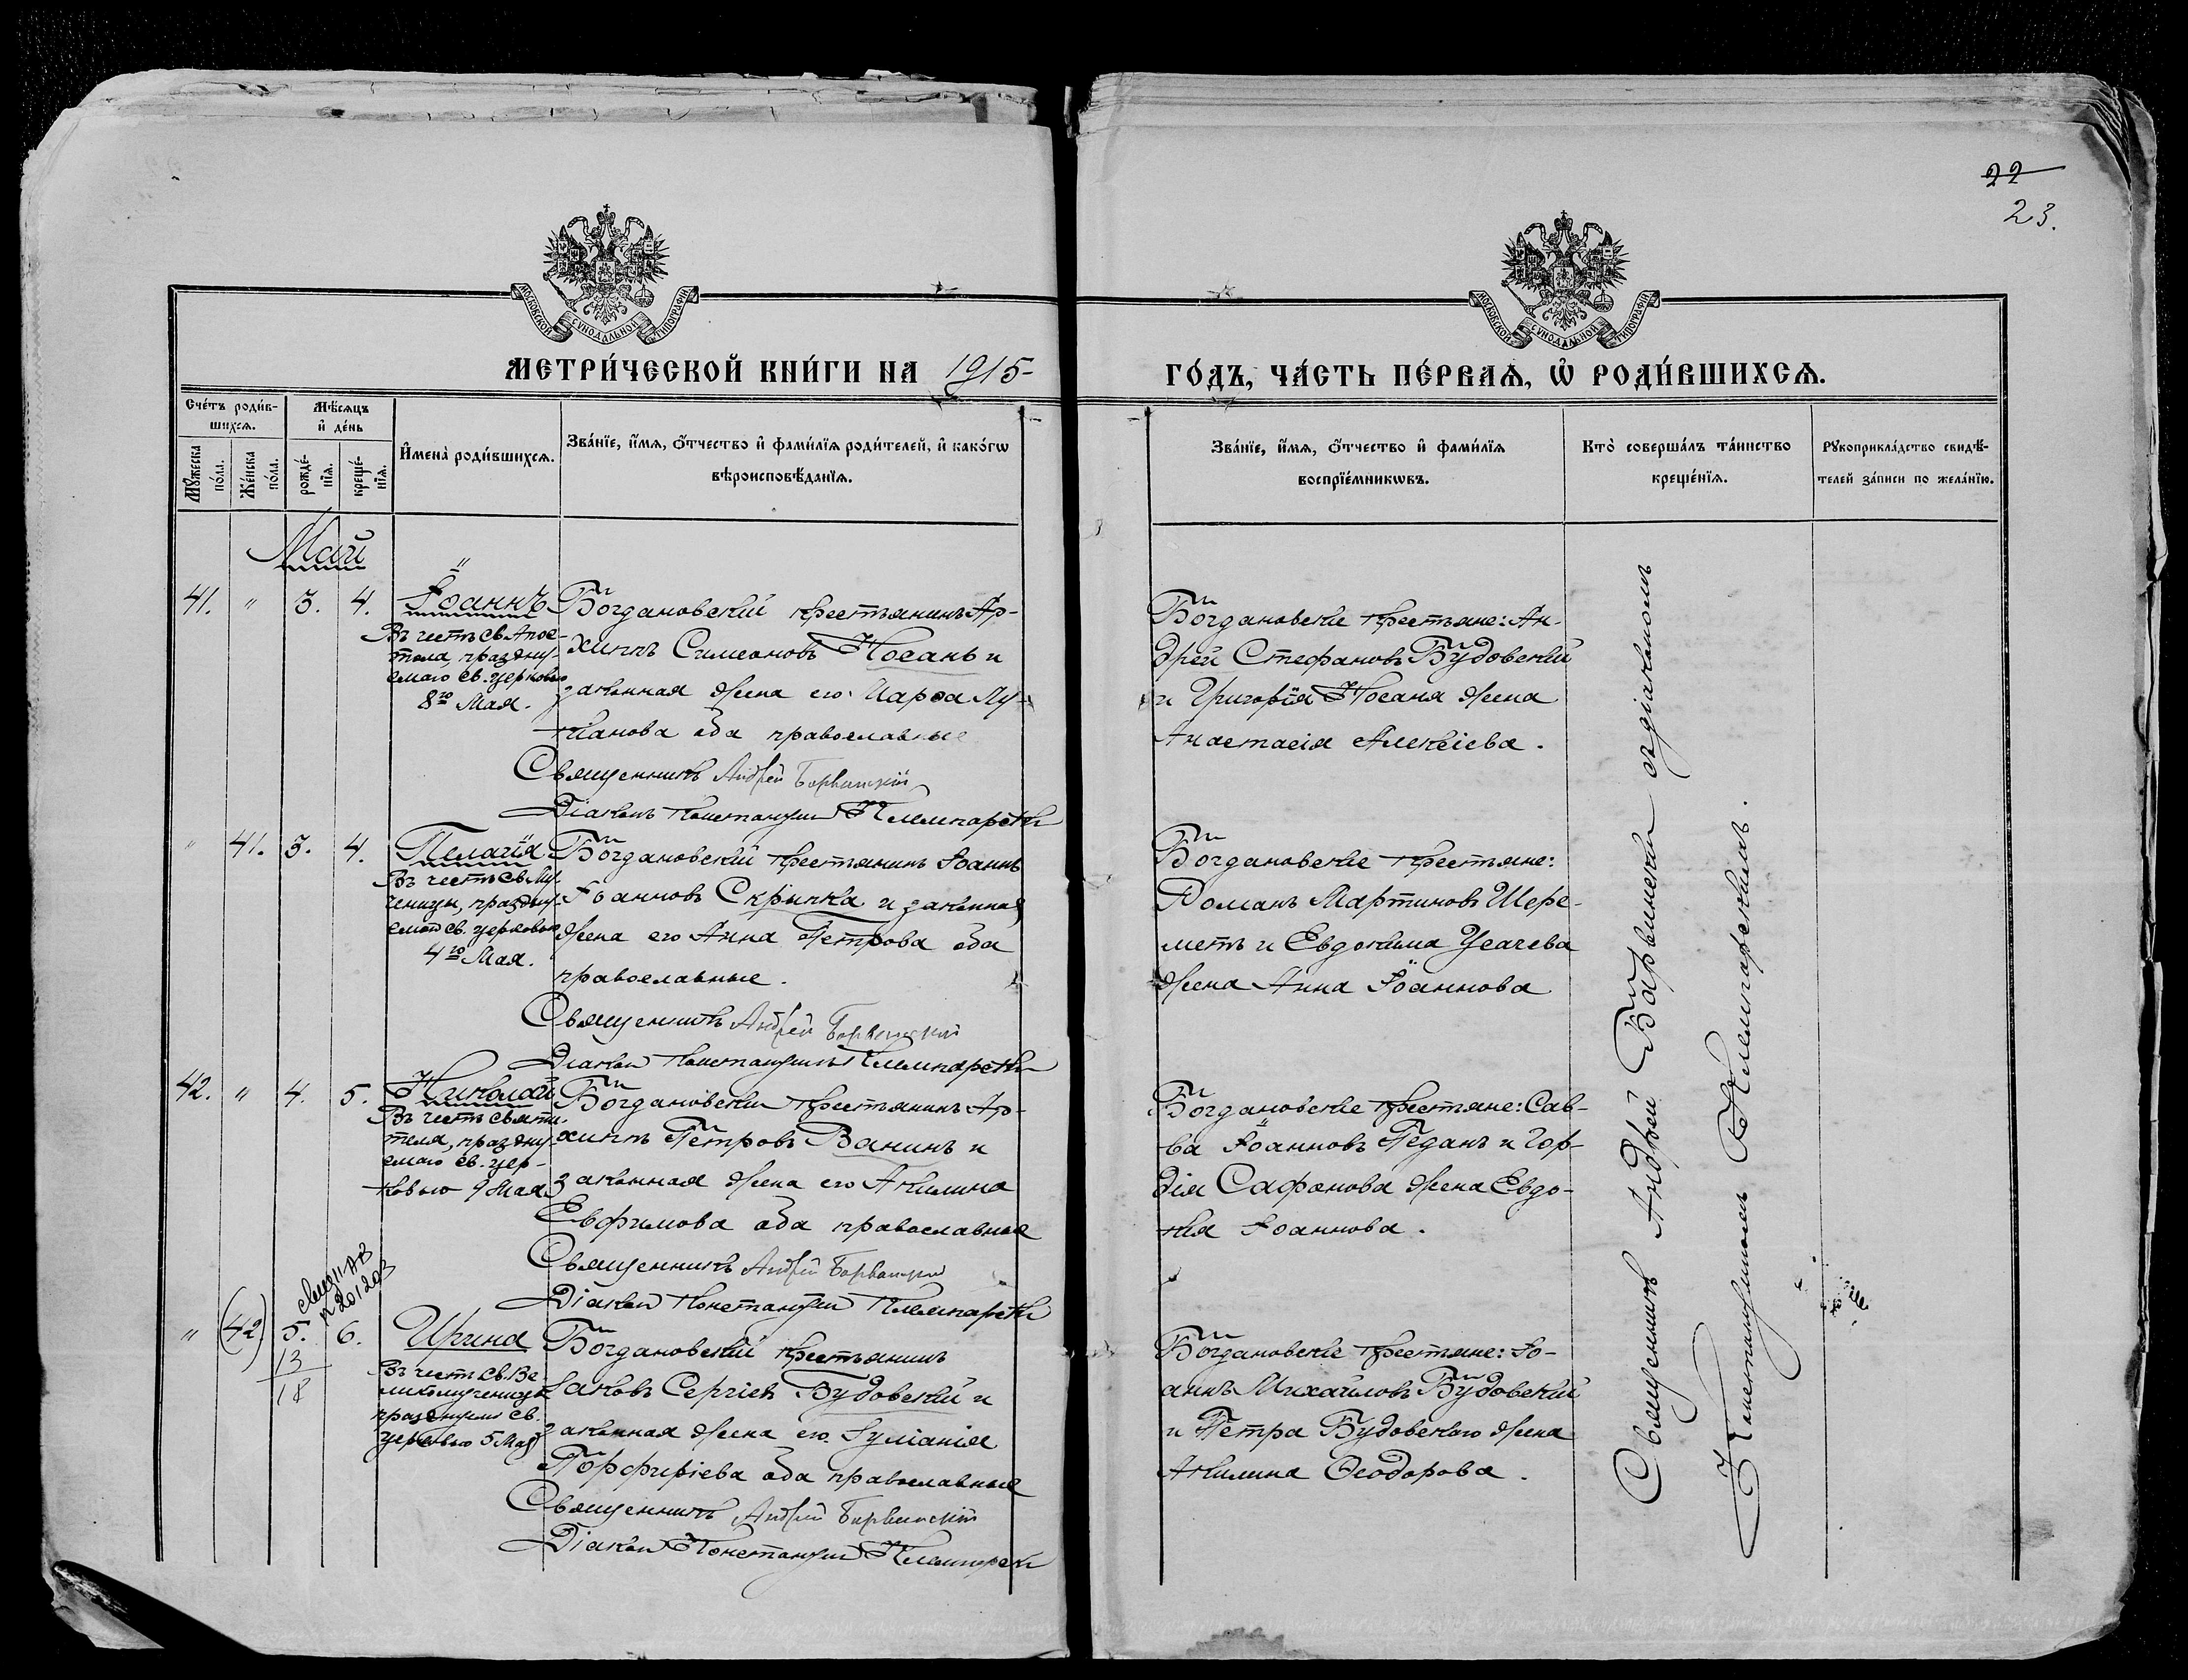 22
23.
МОСКОВСКОЙ СѴНОДАЛЬНОЙ ТИПОГРАФІИ
МОСКОВСКОЙ СѴНОДАЛЬНОЙ ТИПОГРАФІИ
МЕТРИ́ЧЕСКОЙ КНИ́ГИ НА 1915
ГО́ДЪ, ЧА́СТЬ ПЕ́РВАѦ, Ѡ҆ РОДИ́ВШИХСѦ.
Сче́тъ роди́в-
шихсѧ.
Мꙋ́жеска
по́ла.
Же́нска
по́ла.
Мѣ́сѧцъ
и҆ де́нь
рожде́-
нїѧ.
креще́-
нїѧ.
И҆мена̀ роди́вшихсѧ.
Зва́нїе, и҆́мѧ, ѻ҆́тчество и҆ фами́лїѧ роди́телей, и҆ како́гѡ
вѣроисповѣ́данїѧ.
Зва́нїе, и҆́мѧ, ѻ҆́тчество и҆ фами́лїѧ
воспрїе́мникѡвъ.
Кто̀ соверша́лъ та́инство
креще́нїѧ.
Рꙋкоприкла́дство свидѣ́-
телей за́писи по жела́нїю.
Май
41. " 3. 4. Іоаннъ
Въ честь св. Апос-
тола, праздну-
емаго св. церковью
8го Мая.
Богдановскій крестьянинъ Ар-
хиппъ Симеоновъ Носань и
законная жена его Марѳа Лу-
кіанова оба православные
Священникъ Андрей Барвинскій
Діаконъ Константинъ Клемпарскій
Богдановскіе крестьяне: Ан-
дрей Стефановъ Будовскій
и Григорія Носаня жена
Анастасія Алексіева.
" 41. 3. 4. Пелагія
Въ честь св. Му-
ченицы, праздну-
емой св. церковью
4го Мая.
Богдановскій крестьянинъ Іоаннъ
Іоанновъ Скрыпка и законная
жена его Анна Петрова оба
православные.
Священникъ Андрей Барвинскій
Діаконъ Константинъ Клемпарскій
Богдановскіе крестьяне:
Романъ Мартиновъ Шере-
метъ и Евдокима Усачева
жена Анна Іоаннова
42. " 4. 5. Николай
Въ честь Святи-
теля, праздну-
емаго св. цер-
ковью 9 Мая
Богдановскій крестьянинъ Ар-
хиппъ Петровъ Ванинъ и
законная жена его Акилина
Евфимова оба православные
Священникъ Андрей Барвинскій
Діаконъ Константинъ Клемпарскій
Богдановскіе крестьяне: Сав-
ва Іоанновъ Педанъ и Гор-
дія Сафонова жена Евдо-
кія Іоаннова.
" (42) 5. 6. Ирина
13
18
Въ честь св. Ве-
ликомученицы
празднуемой св.
церковью 5 Мая
Богдановскій крестьянинъ
Іаковъ Сергіевъ Будовскій и
законная жена его Іуліанія
Порфиріева оба православные
Священникъ Андрей Барвинскій
Діаконъ Константинъ Клемпарскій
Богдановскіе крестьяне: Іо-
аннъ Михайловъ Будовскій
и Петра Будовскаго жена
Акилина Ѳеодорова.
Священникъ Андрей Барвинскій съ діакономъ
Константиномъ Клемпарскимъ.